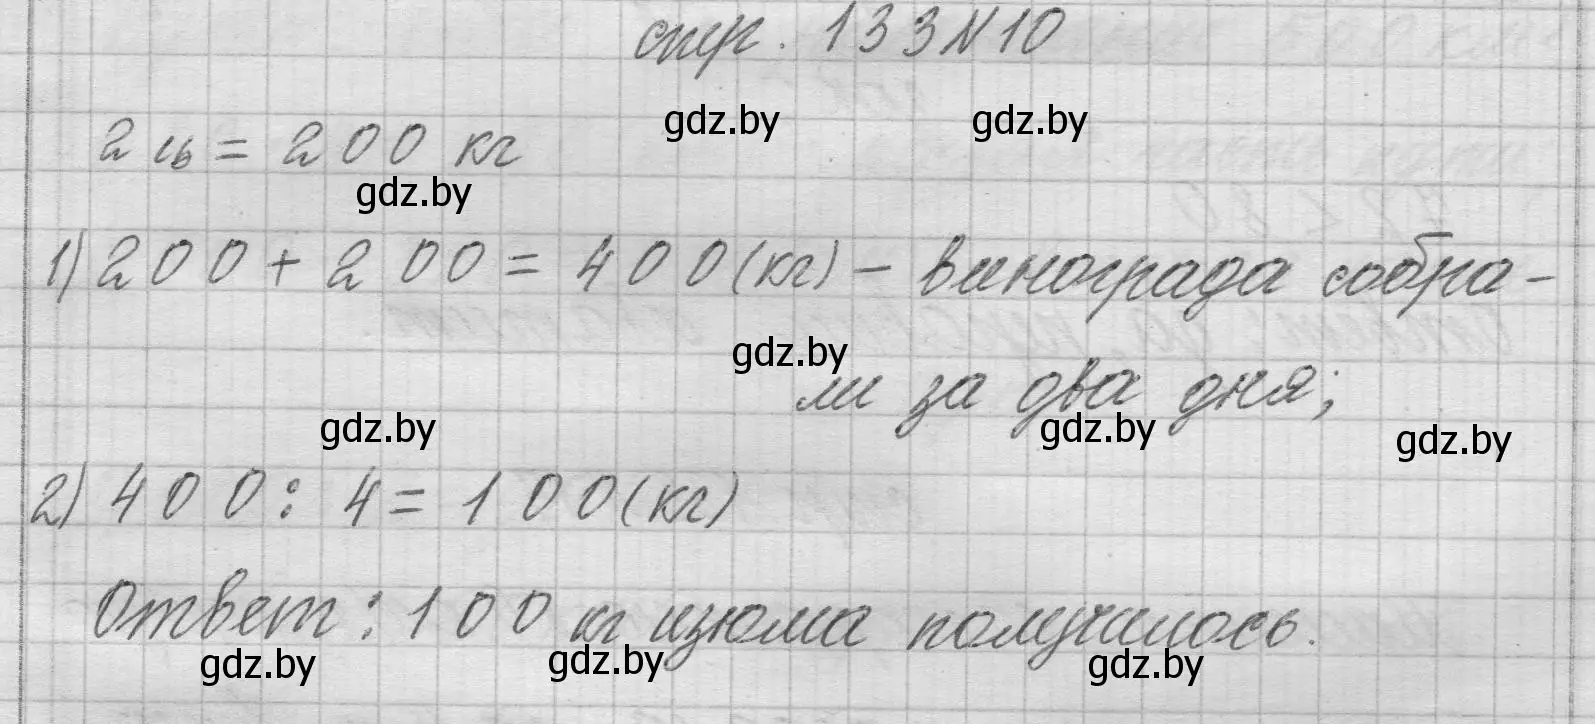 стр. 133 N 10
gdz.by gdz.by
2 ць = 200 кг
gdz.by
1) 200 + 200 = 400 (кг) – винограда собра-
gdz.by
ли за два дня;
gdz.by gdz.by gdz.by
2) 400 : 4 = 100 (кг)
Ответ: 100 кг изюма получилось.
gdz.by gdz.by gdz.by